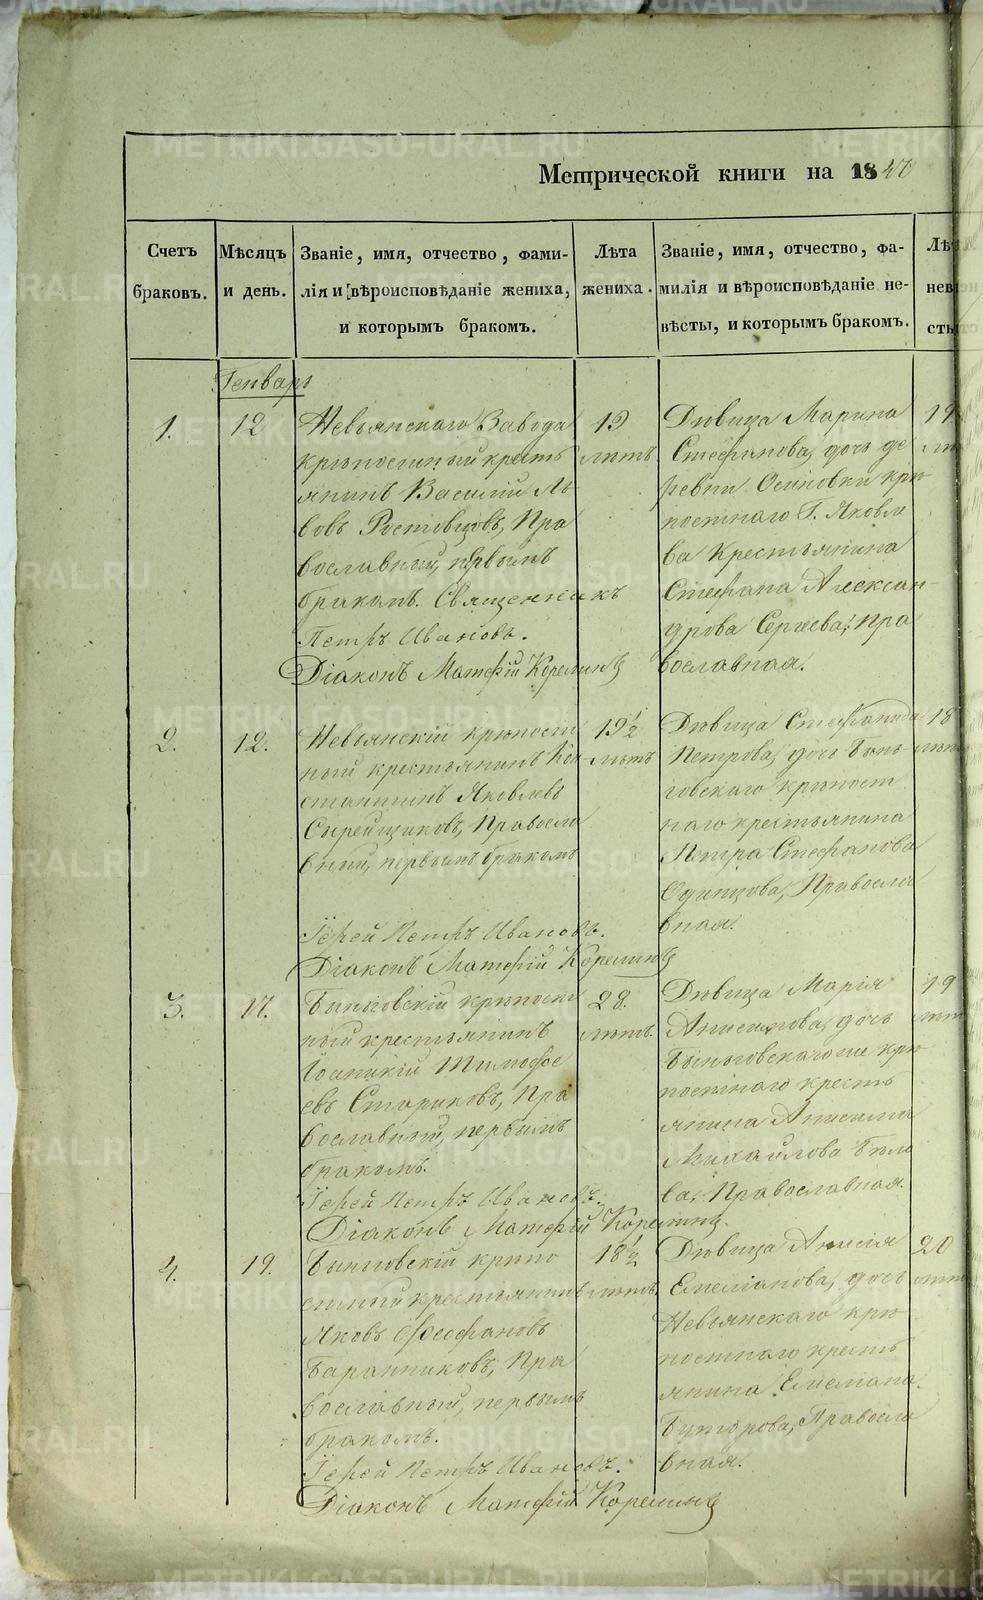 Метрической книги на 1840
Счетъ браковъ.
Мѣсяцъ и день.
Званіе, имя, отчество, фами-
лія и вѣроисповѣданіе жениха,
и которымъ бракомъ.
Лѣта жениха.
Званіе, имя, отчество, фа-
милія и вѣроисповѣданіе не-
вѣсты, и которымъ бракомъ.
Лѣ
нев
сты
Генварь
1.
12
Невьянскаго Завода
крѣпостный кресть
янинъ Василій Ль
вовъ Ростовцовъ, Пра
вославный, первымъ
бракомъ. Священникъ
Петръ Ивановъ.
Діаконъ Матфій Корелинъ
19
лѣтъ
Дѣвица Марина
Стефанова, дочь де
ревни Осиновки крѣ
постнаго Г. Яковле
ва Крестьянина
Стефана Алексан-
дрова Сергеева, Пра
вославная.
19
лѣт
2.
12.
Невьянскій крѣпост
ный крестьянинъ Кон
стантинъ Яковлевъ
Скрейщиковъ, Правосла
вный, первымъ бракомъ
Іерей Петръ Ивановъ.
Діаконъ Матфій Корелинъ
19 1/2
лѣтъ
Дѣвица Стефанида
Петрова, дочь Бынь
говскаго крѣпост
наго крестьянина
Петра Стефанова
Одинцова, Правосла
вная.
18
лѣт
3.
17.
Быньговскій крѣпост
ный крестьянинъ
Іоанникій Тимофе
евъ Стариковъ, Пра
вославный, первымъ
бракомъ.
Іерей Петръ Ивановъ.
Діаконъ Матфій Корелинъ.
28.
лѣтъ.
Дѣвица Марія
Анисимова, дочь
Быньговскаго же крѣ
постнаго кресть
янина Анисима
Михайлова Бѣло
ва, Православная.
19
лѣт
4.
19.
Быньговскій крѣпо
стный крестьянинъ
Яковъ Феофановъ
Баранниковъ, Пра
вославный, первымъ
бракомъ.
Іерей Петръ Ивановъ.
Діаконъ Матфій Корелинъ
18 1/2
лѣтъ
Дѣвица Анисія
Емеліанова, дочь
Невьянскаго крѣ
постнаго кресть
янина Емеліана
Бунторова, Правосла
вная.
20
лѣт
METRIKI.GASO-URAL.RU